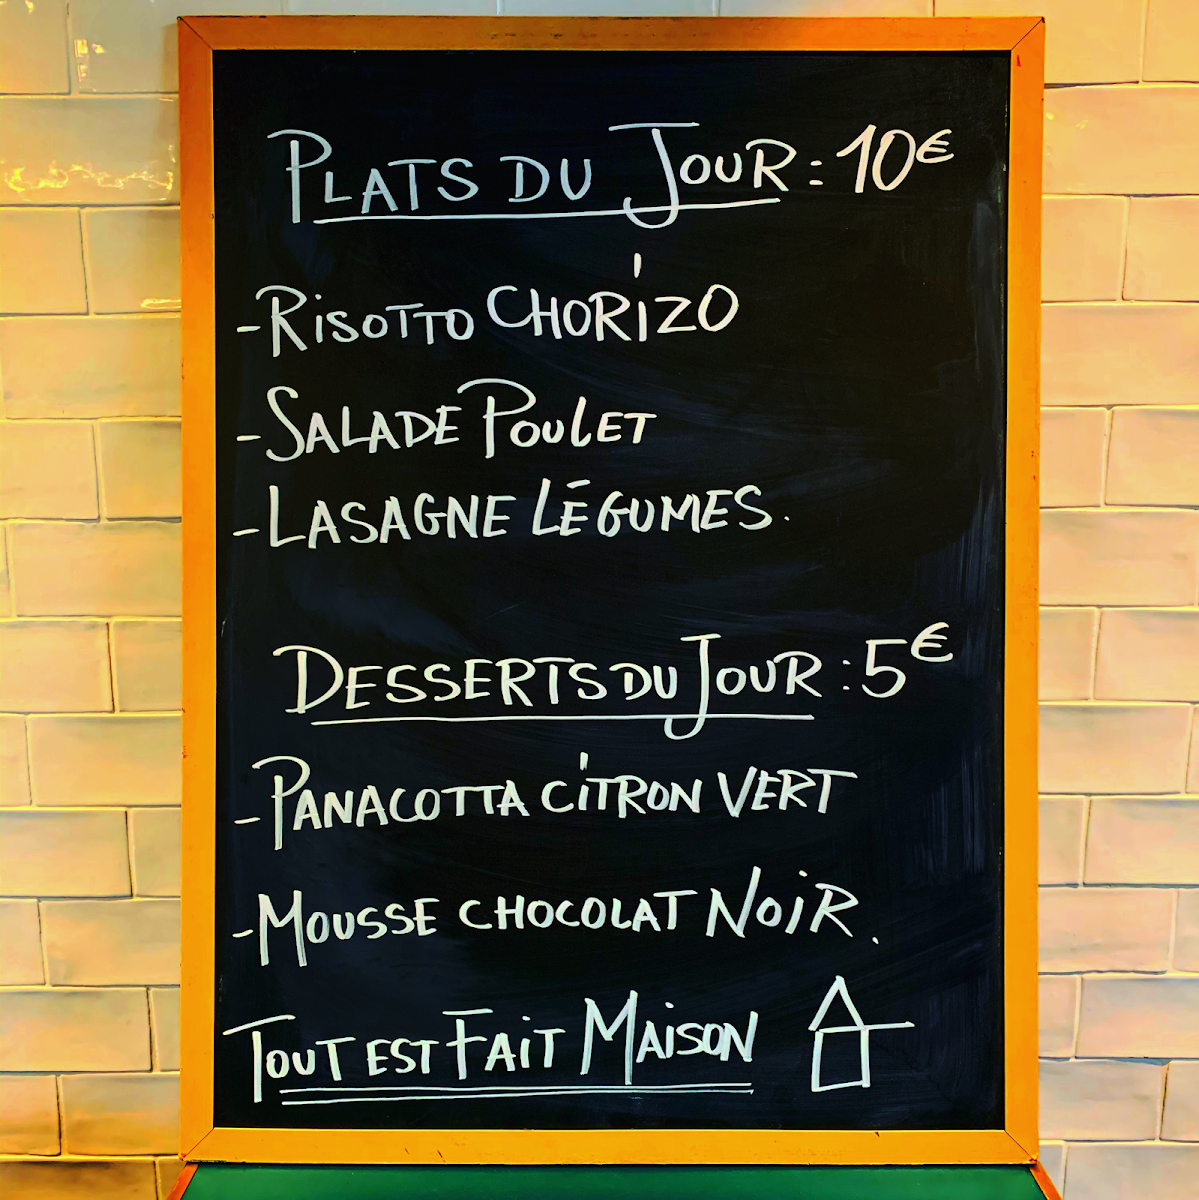 PLATS DU JOUR : 10€
- RISOTTO CHORIZO
- SALADE POULET
- LASAGNE LÉGUMES.
DESSERTS DU JOUR : 5€
- PANACOTTA CITRON VERT
- MOUSSE CHOCOLAT NOIR.
TOUT EST FAIT MAISON